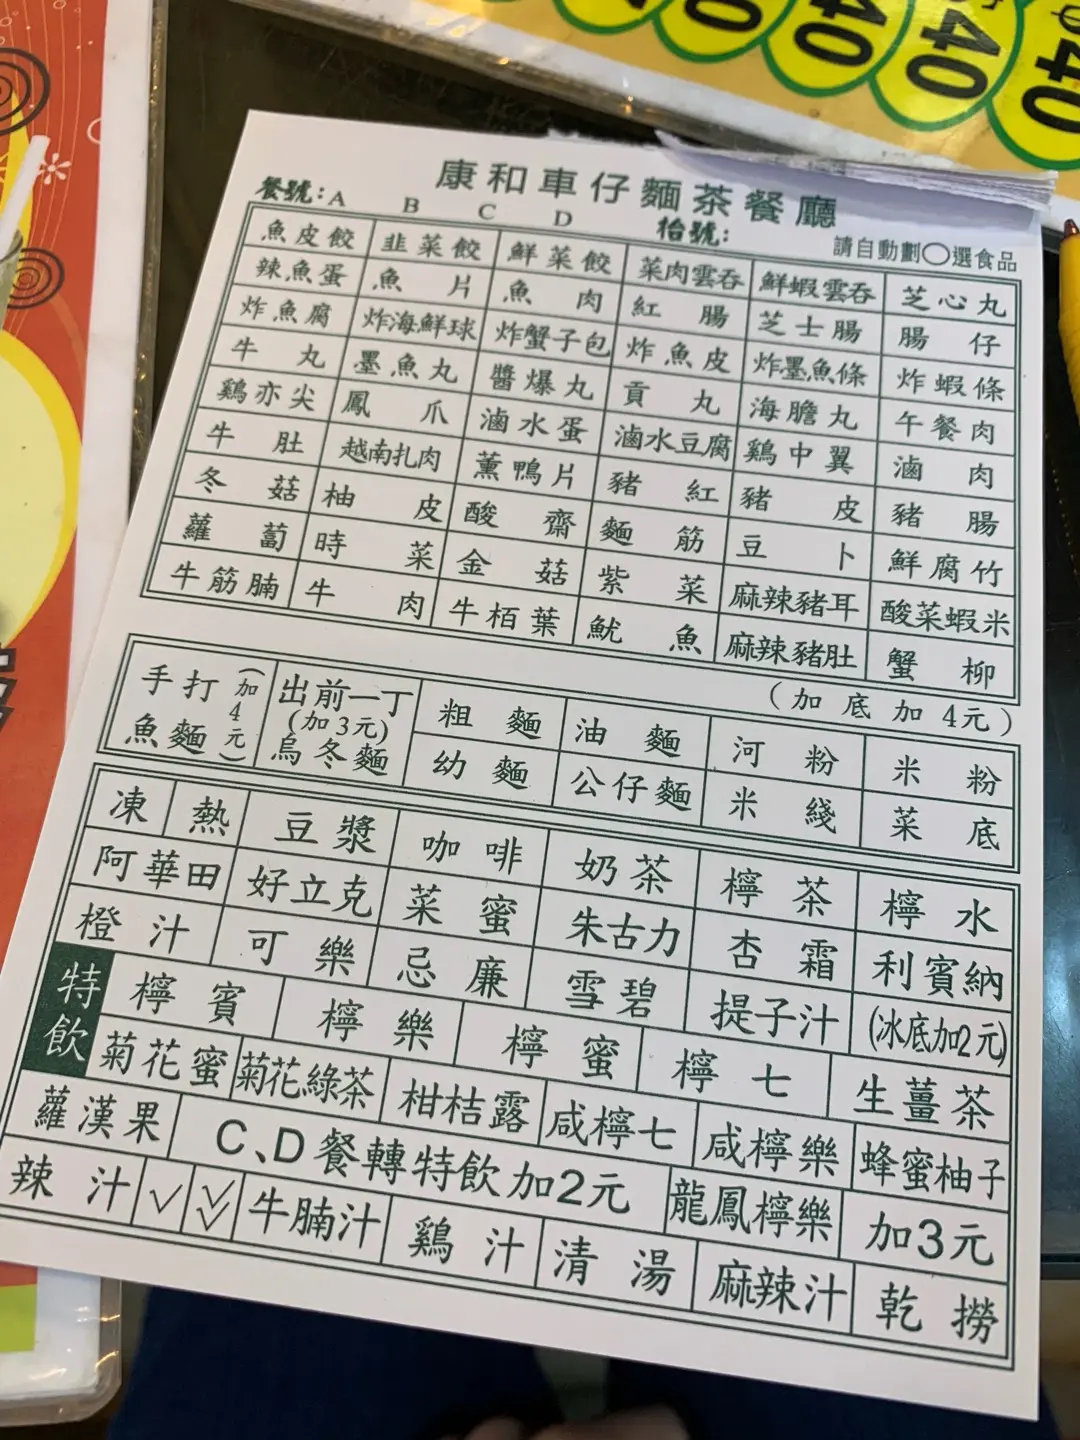 40
40
40
康和車仔麵茶餐廳
餐號：A B C D 枱號：
請自動劃〇選食品
魚皮餃 韭菜餃 鮮菜餃 菜肉雲吞 鮮蝦雲吞 芝心丸
辣魚蛋 魚片 魚肉 紅腸 芝士腸 腸仔
炸魚腐 炸海鮮球 炸蟹子包 炸魚皮 炸墨魚條 炸蝦條
牛丸 墨魚丸 醬爆丸 貢丸 海膽丸 午餐肉
鷄亦尖 鳳爪 滷水蛋 滷水豆腐 鷄中翼 滷肉
牛肚 越南扎肉 薰鴨片 豬紅 豬皮 豬腸
冬菇 柚皮 酸齋 麵筋 豆卜 鮮腐竹
蘿蔔 時菜 金菇 紫菜 麻辣豬耳 酸菜蝦米
牛筋腩 牛肉 牛栢葉 魷魚 麻辣豬肚 蟹柳
（加底加4元）
手打魚麵（加4元） 出前一丁（加3元）烏冬麵 粗麵 油麵 河粉 米粉
幼麵 公仔麵 米綫 菜底
凍 熱 豆漿 咖啡 奶茶 檸茶 檸水
阿華田 好立克 菜蜜 朱古力 杏霜 利賓納
橙汁 可樂 忌廉 雪碧 提子汁 (冰底加2元)
特飲 檸賓 檸樂 檸蜜 檸七 生薑茶
菊花蜜 菊花綠茶 柑桔露 咸檸七 咸檸樂 蜂蜜柚子
蘿漢果 C、D餐轉特飲加2元 龍鳳檸樂 加3元
辣汁 ✓ ✓✓ 牛腩汁 鷄汁 清湯 麻辣汁 乾撈